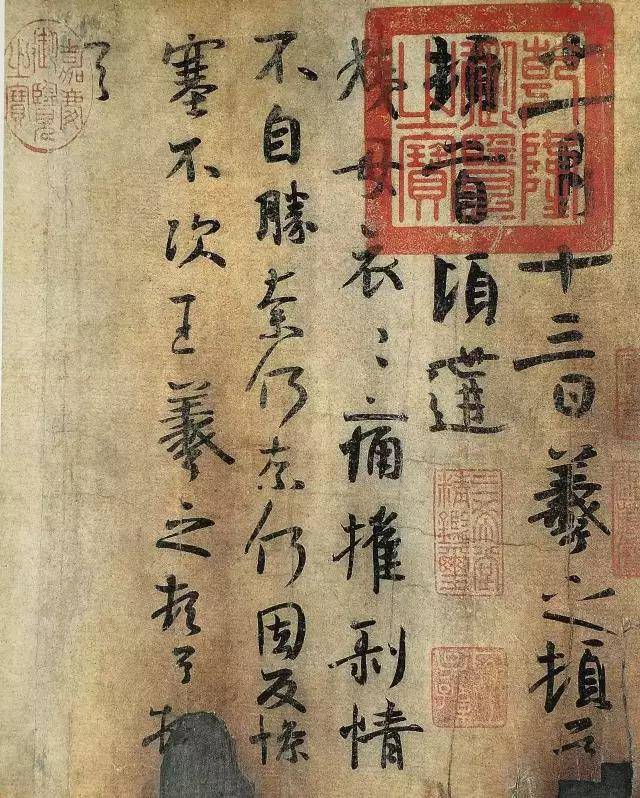 十一月十三日羲之頓首
頓首頃遘
姨母哀哀痛摧剝情
不自勝奈何奈何因反慘
塞不次王羲之頓首頓
首
乾隆御覽之寶
三希堂精鑑璽
宜子孫
嘉慶御覽之寶